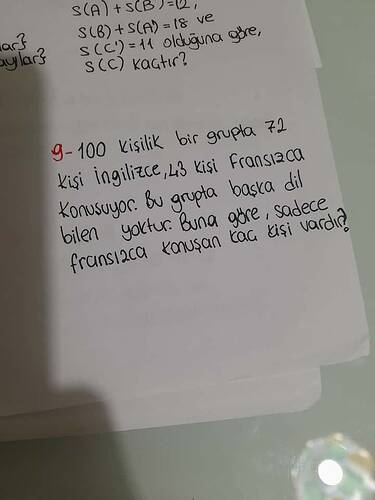 s(A) + s(B') = 12,
s(B) + s(A') = 18 ve
s(C') = 11 olduğuna göre,
s(C) kaçtır?
lar}
aylar}
9- 100 kişilik bir grupta 72
kişi ingilizce, 43 kişi fransızca
konuşuyor. Bu grupta başka dil
bilen yoktur. Buna göre, sadece
fransızca konuşan kaç kişi vardır?